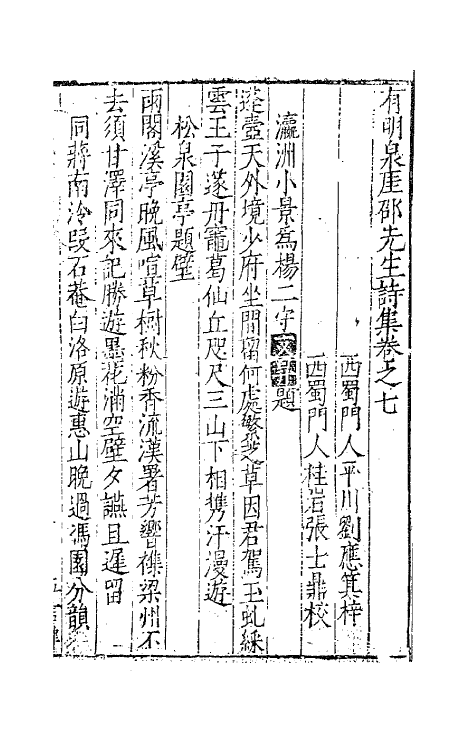 有明泉厓邵先生詩集卷之七
西蜀門人平川劉應箕梓
西蜀門人桂岩張士鼎校
瀛洲小景為楊二守題
蓬壺天外境少府坐間留何處繁芝草因君駕玉虬綵
雲王子邃丹竈葛仙丘咫尺三山下相携汗漫遊
松泉閣亭題壁
雨閣溪亭晚風喧草樹秋粉香流漢署芳響襍梁州不
去須甘澤同來記勝遊墨花滿空壁夕讌且遲留
同蔣南泠段石菴白洛原遊惠山晚過馮園分韻